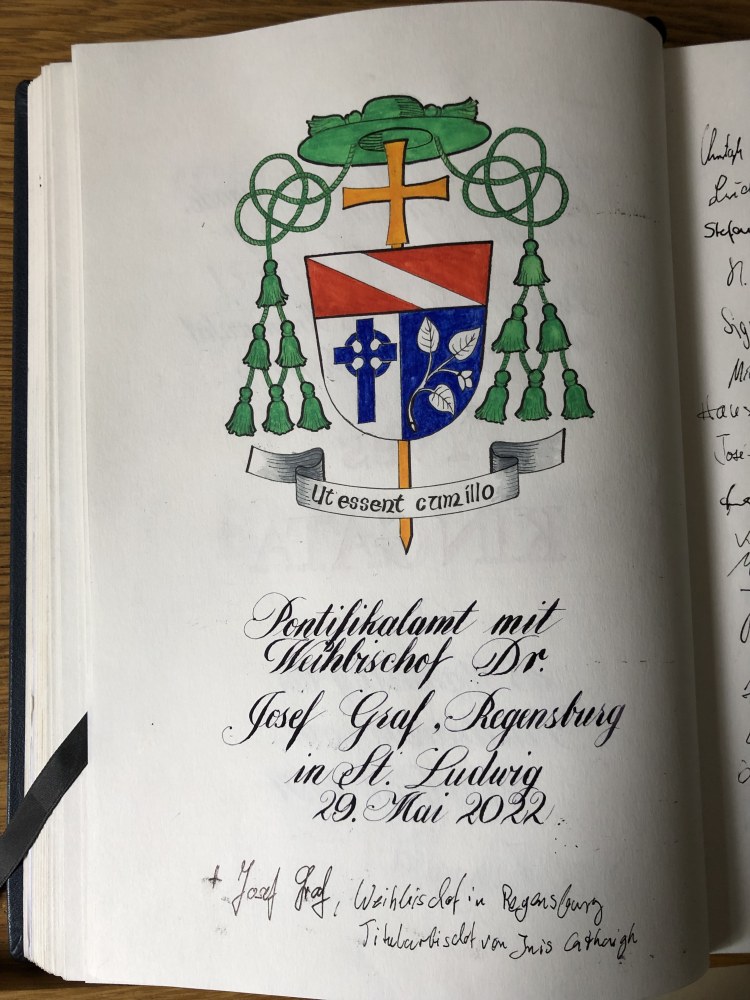 Ut essent cum illo
Pontifikalamt mit
Weihbischof Dr.
Josef Graf, Regensburg
in St. Ludwig
29. Mai 2022
+ Josef Graf, Weihbischof in Regensburg
Titularbischof von Inis Cathaigh
Stefan
Sig
José